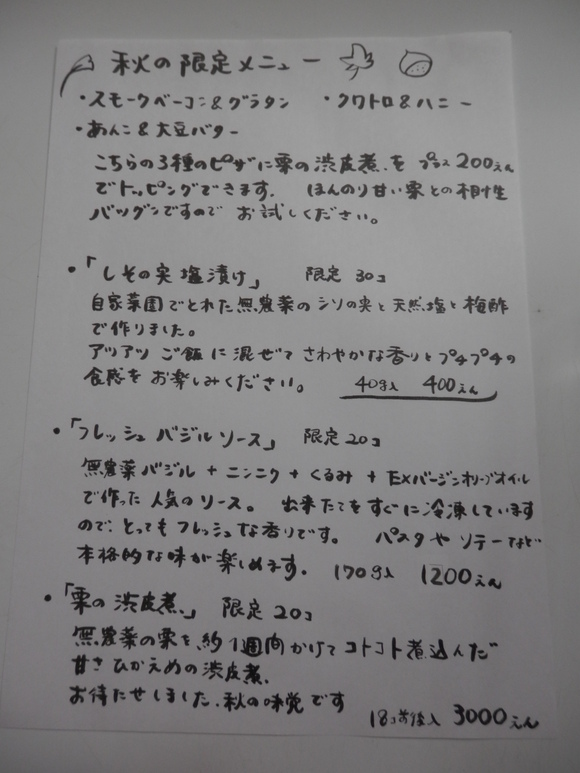 秋の限定メニュー
・スモークベーコン&グラタン ・クワトロ&ハニー
・あんこ&大豆バター
こちらの3種のピザに栗の渋皮煮を プラス200えん
でトッピングできます。 ほんのり甘い栗との相性
バツグンですので お試しください。
・「しその実塩漬け」 限定 30コ
自家菜園でとれた無農薬のシソの実と天然塩と梅酢
で作りました。
アツアツご飯に混ぜて さわやかな香りとプチプチの
食感をお楽しみください。 40g入 400えん
・「フレッシュバジルソース」 限定20コ
無農薬バジル+ニンニク+くるみ+EXバージンオリーブオイル
で作った人気のソース。 出来たてをすぐに冷凍しています
ので、とってもフレッシュな香りです。 パスタやソテーなど
本格的な味が楽しめます。 170g入 1200えん
・「栗の渋皮煮」 限定20コ
無農薬の栗を、約1週間かけてコトコト煮込んだ
甘さひかえめの渋皮煮。
お待たせしました、秋の味覚です
18コ前後入 3000えん